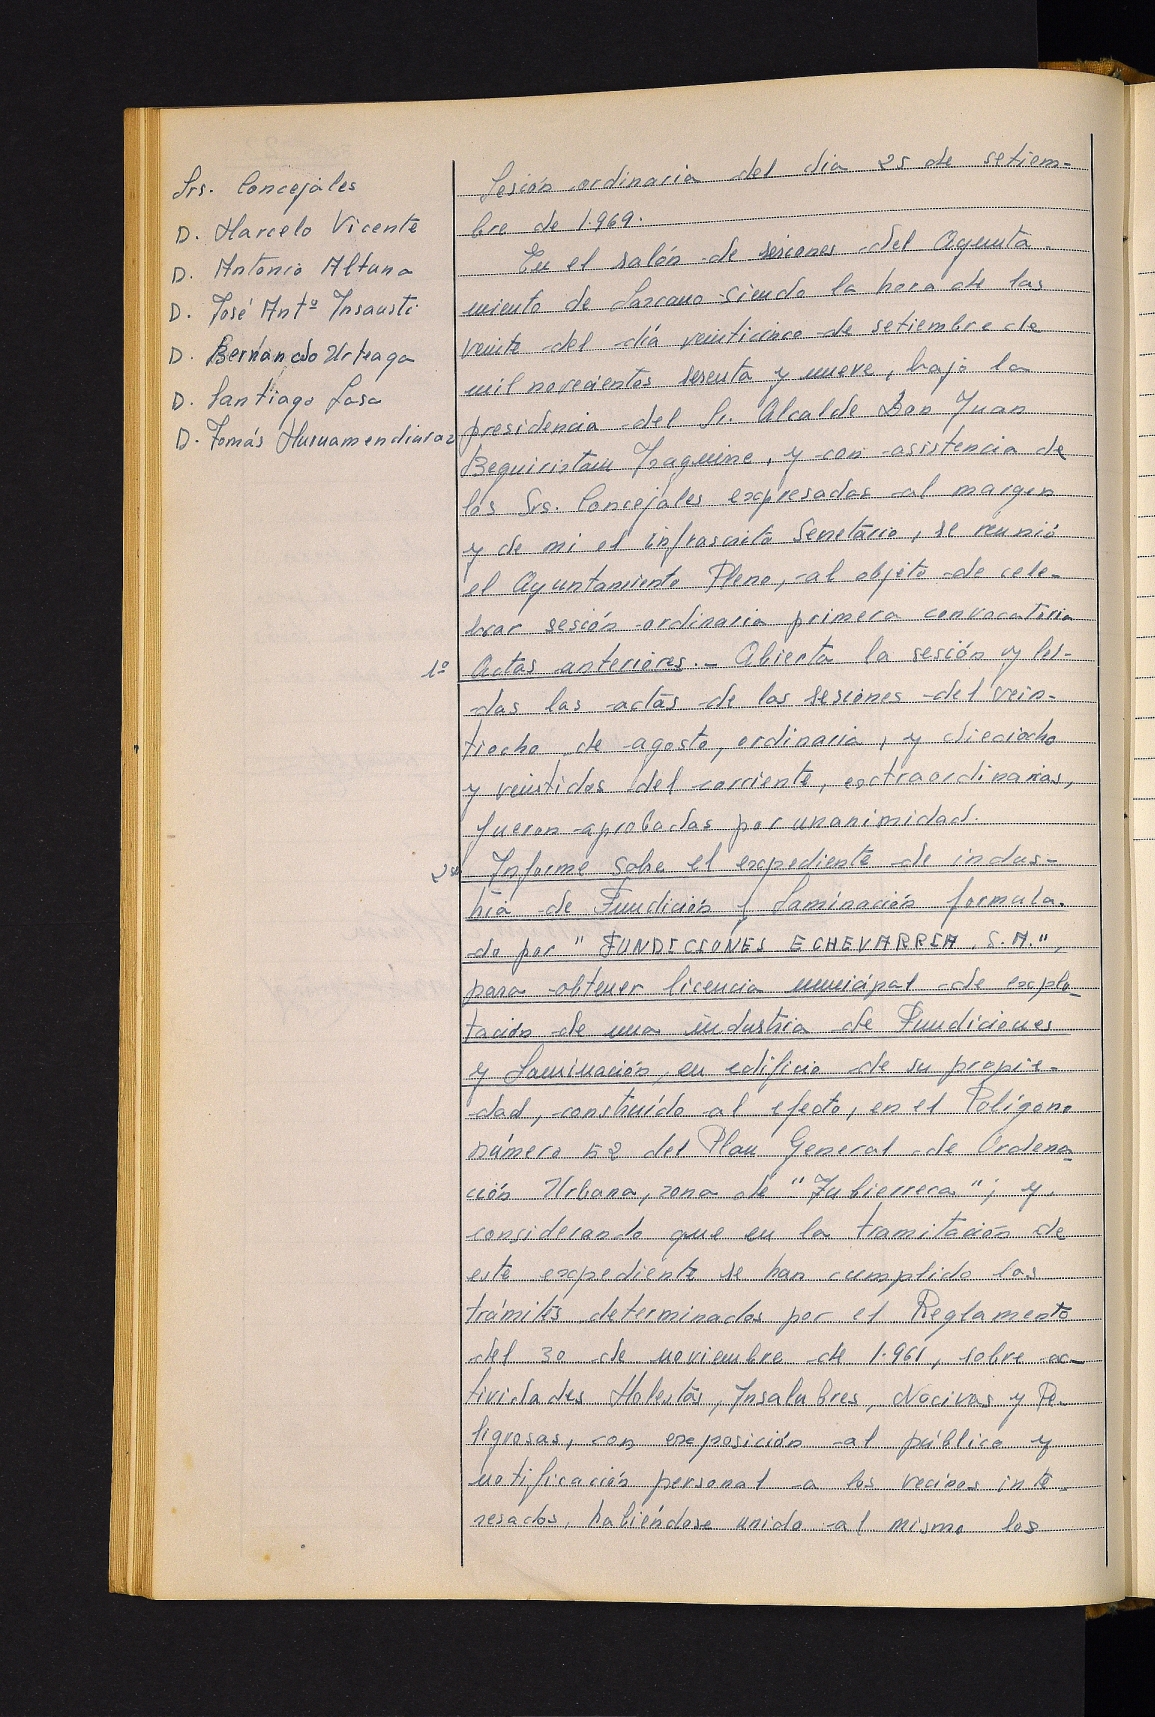 Srs. Concejales
D. Marcelo Vicente
D. Antonio Altuna
D. José Antº Insausti
D. Bernardo Urteaga
D. Santiago Lasa
D. Tomás
Sesión ordinaria del dia 25 de setiem-
bre de 1.969.
En el salón de sesiones del Ayunta-
miento de Lazcano siendo la hora de las
veinte del día veinticinco de setiembre de
mil novecientos sesenta y nueve, bajo la
presidencia del Sr. Alcalde Don Juan
Beguiristain, y con asistencia de
los Srs. Concejales expresados al margen
y de mi el infrascrito Secretario, se reunió
el Ayuntamiento Pleno, al objeto de cele-
brar sesión ordinaria primera convocatoria
1º Actas anteriores.- Abierta la sesión y leí-
das las actas de las sesiones del vein-
tiocho de agosto, ordinaria, y dieciocho
y veintidos del corriente, extraordinarias,
fueron aprobadas por unanimidad.
2º Informe sobre el expediente de indus-
tria de Fundición y Laminación formula-
do por "FUNDICIONES ECHEVARRIA, S.A.",
para obtener licencia municipal de explo-
tación de una industria de Fundiciones
y Laminación, en edificio de su propie-
dad, construído al efecto, en el Polígono
número 52 del Plan General de Ordena-
ción Urbana, zona de "Zubierreca"; y
considerando que en la tramitación de
este expediente se han cumplido los
trámites determinados por el Reglamento
del 30 de noviembre de 1.961, sobre ac-
tividades Molestas, Insalubres, Nocivas y Pe-
ligrosas, con exposición al público y
notificación personal a los vecinos inte-
resados, habiéndose unido al mismo los